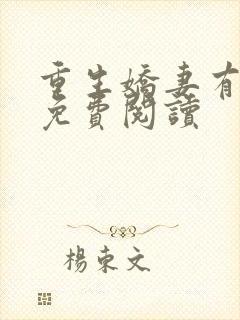 重生嬌妻有
免費閱讀
楊東文